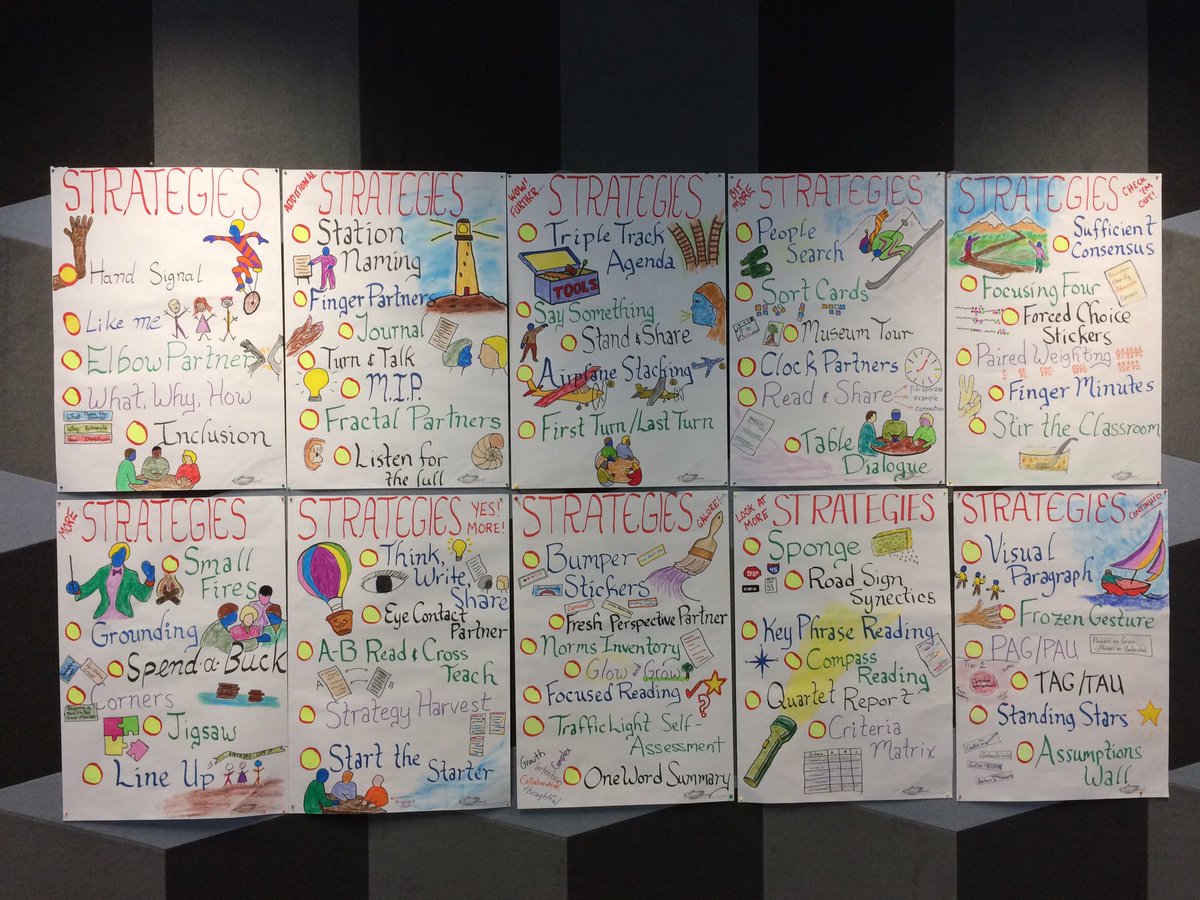 STRATEGIES
Hand Signal
Like me
Elbow Partner
What, Why, How
Inclusion
ADDITIONAL
STRATEGIES
Station
Naming
Finger Partners
Journal
Turn & Talk
M.I.P.
Fractal Partners
Listen for
the lull
WOW!
FURTHER...
STRATEGIES
Triple Track
Agenda
TOOLS
Say Something
Stand & Share
Airplane Stacking
First Turn/Last Turn
BIT
MORE
STRATEGIES
People
Search
Sort Cards
Museum Tour
Clock Partners
Read & Share
paraphrase
example
connection
Table
Dialogue
STRATEGIES
CHECK
'EM
OUT!
Sufficient
Consensus
Focusing Four
Brainstorm
Clarify
Advocate
Canvass
Forced Choice
Stickers
Paired Weighting
Finger Minutes
Stir the Classroom
MORE
STRATEGIES
Small
Fires
Grounding
Spend-a-Buck
Corners
Jigsaw
Line Up
STRATEGIES
YES!
MORE!
Think,
Write,
Share
Eye Contact
Partner
A-B Read & Cross
Teach
A
B
Strategy Harvest
Start the
Starter
STRATEGIES
GALORE!
Bumper
Stickers
Fresh Perspective Partner
Norms Inventory
Glow and Grow
Focused Reading
?
Traffic Light Self-
Assessment
Growth
Complex
Intention
Collaborative
thoughtful
One Word Summary
LOOK AT
MORE
STRATEGIES
Sponge
STOP
Road Sign
Synectics
Key Phrase Reading
Compass
Reading
Quartet Report
Criteria
Matrix
STRATEGIES
CONTINUED
Visual
Paragraph
Frozen Gesture
PAG/PAU
Process as Given
Process as Understood
Tier 1
TAG/TAU
Standing Stars
Assumptions
Wall